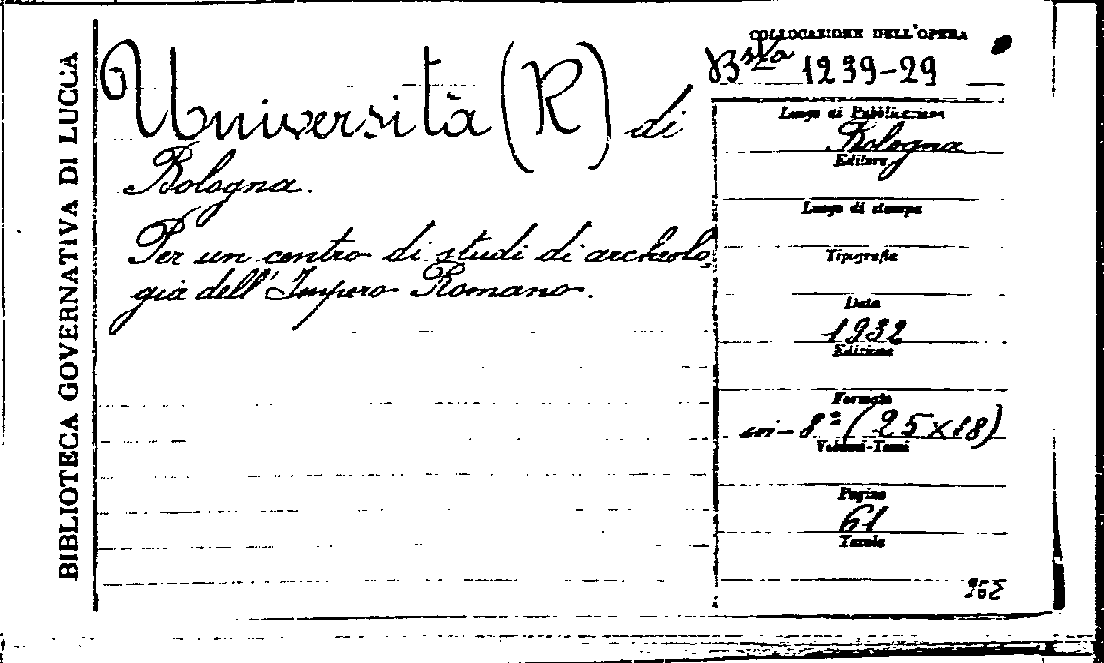 BIBLIOTECA GOVERNATIVA DI LUCCA
Università (R) di
Bologna.
Per un centro di studi di archeolo-
gia dell'Impero Romano.
COLLOCAZIONE DELL'OPERA
Bsta 1239-29
Luogo di Pubblicazione
Bologna
Editore
Luogo di stampa
Tipografia
Data
1932
Edizione
Formato
in-8º (25x18)
Volumi-Tomi
Pagine
61
Tavole